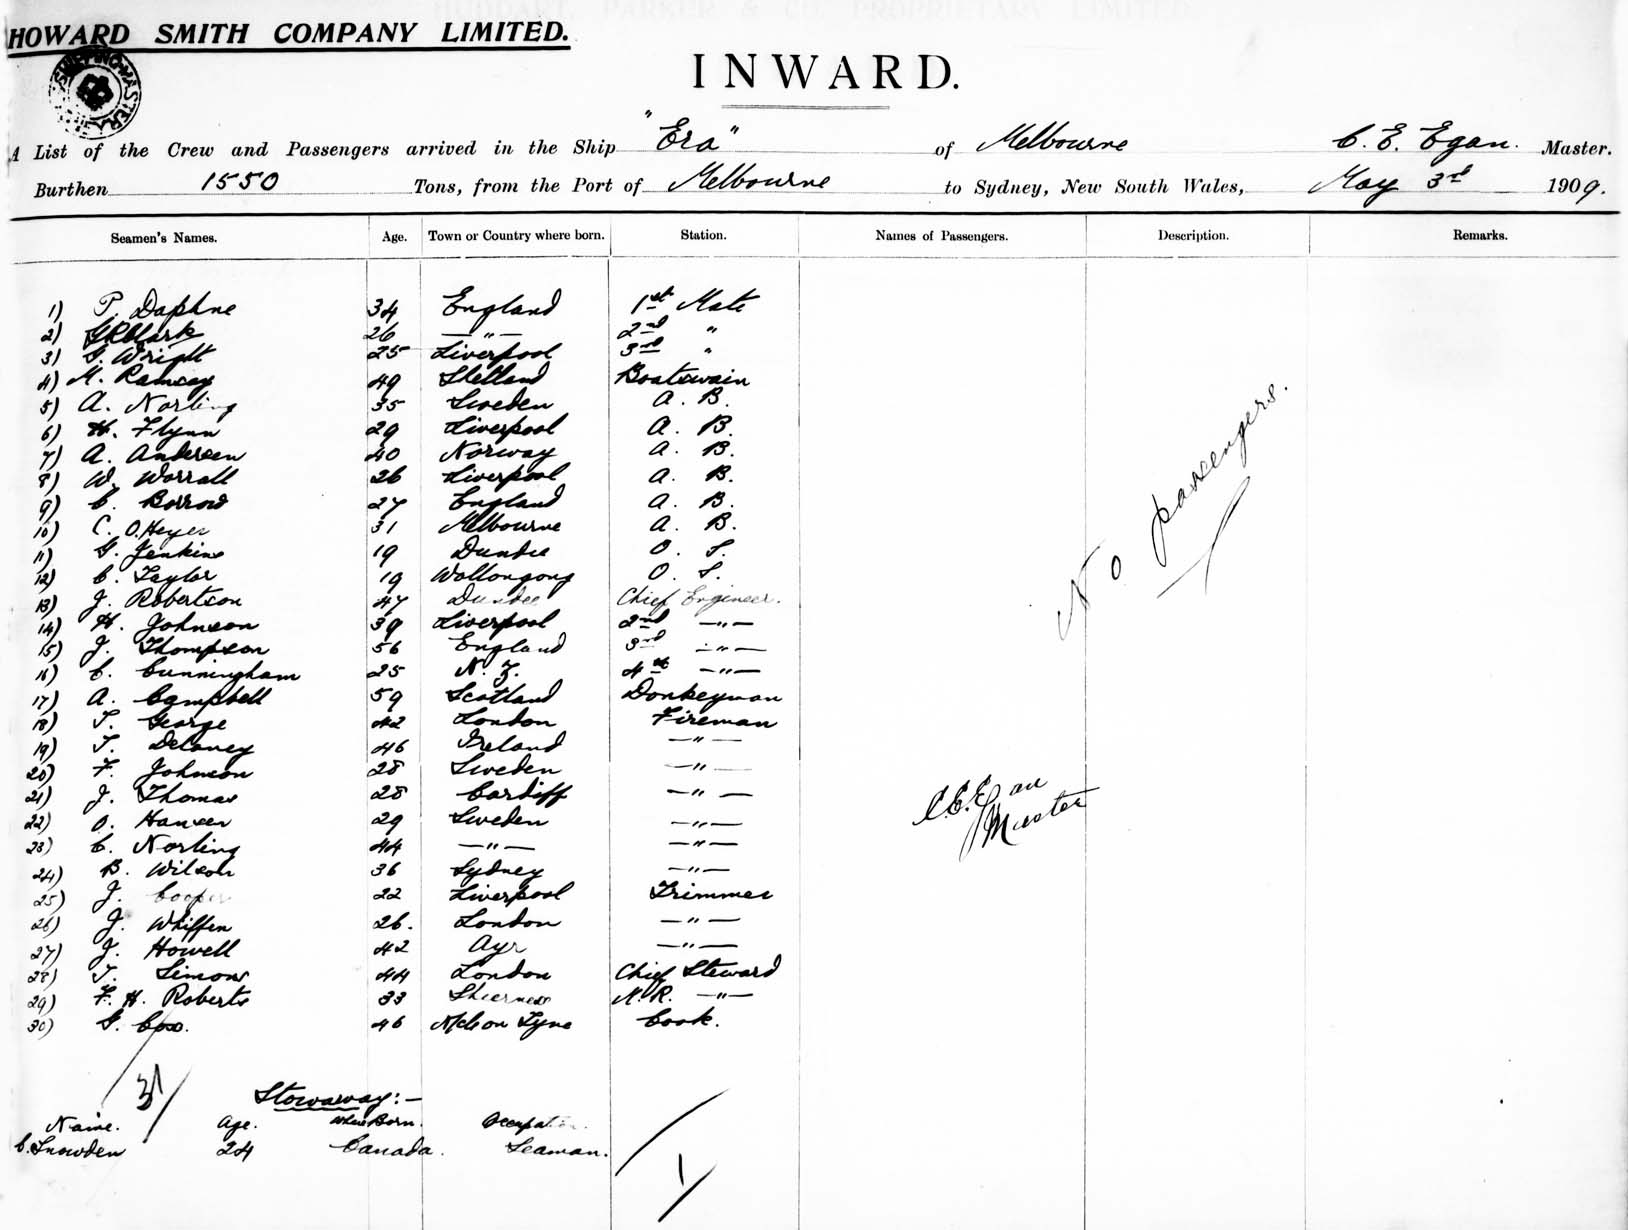 HOWARD SMITH COMPANY LIMITED.
INWARD.
A List of the Crew and Passengers arrived in the Ship "Era" of Melbourne C. E. Egan. Master.
Burthen 1550 Tons, from the Port of Melbourne to Sydney, New South Wales, May 3rd 1909.
Seamen's Names. Age. Town or Country where born. Station. Names of Passengers. Description. Remarks.
1) P. Daphne 34 England 1st Mate
2) Clark 26 —"— 2nd "
3) G. Wright 25 Liverpool 3rd "
4) M. Ramsay 49 Shetland Boatswain
5) A. Norling 35 Sweden A. B.
6) H. Flynn 29 Liverpool A. B.
7) A. Andersen 40 Norway A. B.
8) W. Worrall 26 Liverpool A. B.
9) C. Borrow 27 England A. B.
10) C. O. Heyer 31 Melbourne A. B.
11) G. Jenkins 19 Dundee O. S.
12) C. Taylor 19 Wollongong O. S.
13) J. Robertson 47 Dundee Chief Engineer.
14) H. Johnson 39 Liverpool 2nd —"—
15) J. Thompson 56 England 3rd —"—
16) C. Cunningham 25 N. Z. 4th —"—
17) A. Campbell 59 Scotland Donkeyman
18) T. George 42 London Fireman
19) T. Delaney 46 Ireland —"—
20) F. Johnson 28 Sweden —"—
21) J. Thomas 28 Cardiff —"—
22) O. Hansen 29 Sweden —"—
23) C. Norling 44 —"— —"—
24) B. Wilson 36 Sydney —"—
25) J. Cooper 22 Liverpool Trimmer
26) J. Whiffen 26. London —"—
27) J. Howell 42 Ayr —"—
28) T. Simons 44 London Chief Steward
29) F. H. Roberts 33 Sheerness —"—
30) G. Cox. 46 Tyne Cook.
No passengers.
C. E. Egan
Master
31
Stowaway:—
Name. Age. Where Born. Occupation.
C. Snowden 24 Canada. Seaman.
1